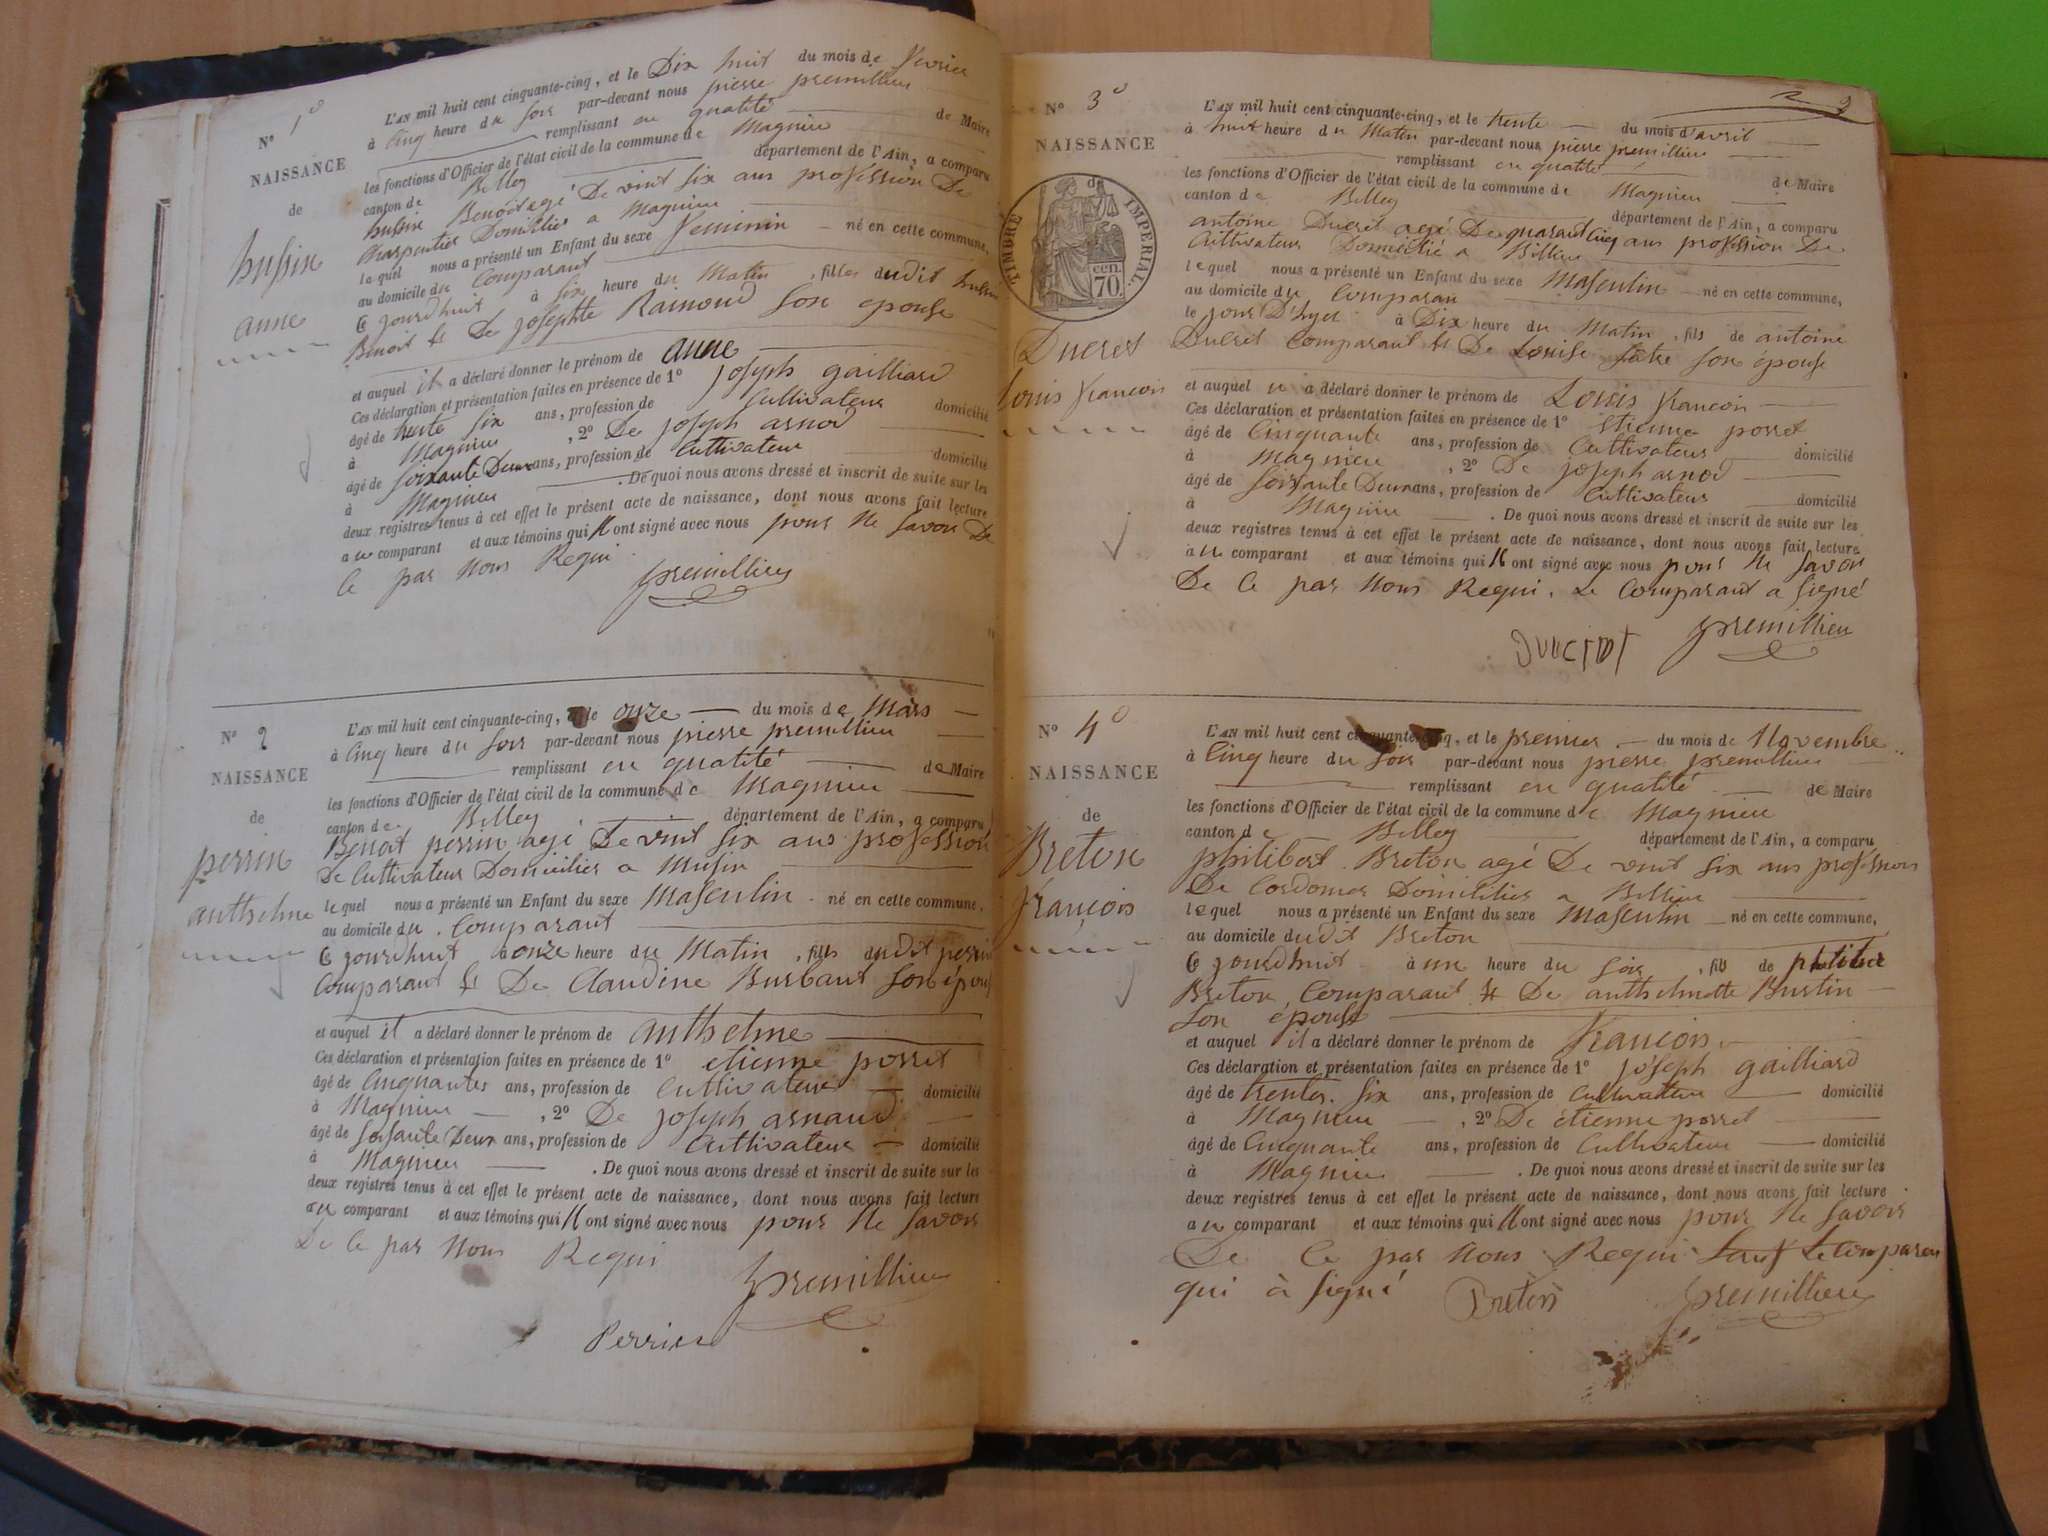 No 1o
NAISSANCE
de
hussin
anne
L'AN mil huit cent cinquante-cinq, et le Dix huit du mois de fevrier
à Cinq heure du soir par-devant nous pierre premillieu
remplissant en qualité de Maire
les fonctions d'Officier de l'état civil de la commune de Magnieu
canton de Belley département de l'Ain, a comparu
hussin Benoit agé De vint six ans proféssion De
charpentier Domicilié a Magnieu
lequel nous a présenté un Enfant du sexe feminin né en cette commune,
au domicile du Comparant
Ce jourdhuit à six heure du Matin, filles dudit hussin
Benoit et De josephte Raimond son épouse
et auquel il a déclaré donner le prénom de anne
Ces déclaration et présentation faites en présence de 1o joseph gailliard
âgé de trente six ans, profession de Cultivateur domicilié
à Magnieu, 2o De joseph arnod
âgé de soixante Deux ans, profession de Cultivateur domicilié
à Magnieu. De quoi nous avons dressé et inscrit de suite sur les
deux registres tenus à cet effet le présent acte de naissance, dont nous avons fait lecture
au comparant et aux témoins qui N ont signé avec nous pour ne savoir De
Ce par nous Requi
premillieu
No 2
NAISSANCE
de
perrin
anthelme
L'AN mil huit cent cinquante-cinq, et le onze du mois de Mars
à Cinq heure du soir par-devant nous pierre premillieu
remplissant en qualité de Maire
les fonctions d'Officier de l'état civil de la commune de Magnieu
canton de Belley département de l'Ain, a comparu
Benoit perrin agé De vint six ans proféssion
De Cultivateur Domicilier a Musin
lequel nous a présenté un Enfant du sexe Masculin né en cette commune,
au domicile du Comparant
Ce jourdhuit à onze heure du Matin, fils dudit perrin
Comparant et De Claudine Burbant son épous
et auquel il a déclaré donner le prénom de anthelme
Ces déclaration et présentation faites en présence de 1o etienne porret
âgé de Cinquantes ans, profession de Cultivateur domicilié
à Magnieu, 2o De joseph arnaud
âgé de soisante Deux ans, profession de Cultivateur domicilié
à Magnieu. De quoi nous avons dressé et inscrit de suite sur les
deux registres tenus à cet effet le présent acte de naissance, dont nous avons fait lecture
au comparant et aux témoins qui N ont signé avec nous pour ne savoir
De Ce par nous Requi
premillieu
Perrin
No 3o
NAISSANCE
de
TIMBRE IMPERIAL.
70 cen.
Ducret
Louis francois
L'AN mil huit cent cinquante-cinq, et le trente du mois d'avril
à huit heure du Matin par-devant nous pierre premillieu
remplissant en qualité de Maire
les fonctions d'Officier de l'état civil de la commune de Magnieu
canton de Belley département de l'Ain, a comparu
antoine Ducret agé De quarant Cinq ans profession De
Cultivateur Domicilié a Billieu
lequel nous a présenté un Enfant du sexe Masculin né en cette commune,
au domicile du Comparan
le jour D'hyer à Dix heure du Matin, fils de antoine
Ducret Comparant et De Louise son épouse
et auquel il a déclaré donner le prénom de Louis francois
Ces déclaration et présentation faites en présence de 1o Etienne porret
âgé de Cinquante ans, profession de Cultivateur domicilié
à Magnieu, 2o De joseph arnod
âgé de soissante Deux ans, profession de Cultivateur domicilié
à Magnieu. De quoi nous avons dressé et inscrit de suite sur les
deux registres tenus à cet effet le présent acte de naissance, dont nous avons fait lecture
au comparant et aux témoins qui N ont signé avec nous pour ne savoir
De Ce par nous Requi. Le Comparant a signé
premillieu
No 4o
NAISSANCE
de
Breton
françois
L'AN mil huit cent cinquante-cinq, et le premier du mois de Novembre
à Cinq heure du soir par-devant nous pierre premillieu
remplissant en qualité de Maire
les fonctions d'Officier de l'état civil de la commune de Magnieu
canton de Belley département de l'Ain, a comparu
philibert Breton agé De vint six ans profession
De Cordonier Domicilier a Billieu
lequel nous a présenté un Enfant du sexe Masculin né en cette commune,
au domicile dudit Breton
Ce jourdhuit à une heure du soir, fils de
Breton Comparant et De anthelmette Burtin
son épouse
et auquel il a déclaré donner le prénom de françois
Ces déclaration et présentation faites en présence de 1o jóseph gailliard
âgé de trentes six ans, profession de Cultivateur domicilié
à Magnieu, 2o De étienne porret
âgé de Cinquante ans, profession de Cultivateur domicilié
à Magnieu. De quoi nous avons dressé et inscrit de suite sur les
deux registres tenus à cet effet le présent acte de naissance, dont nous avons fait lecture
au comparant et aux témoins qui N ont signé avec nous pour ne savoir
De Ce par nous Requi sauf le comparen
qui à signé
Breton
premillieu